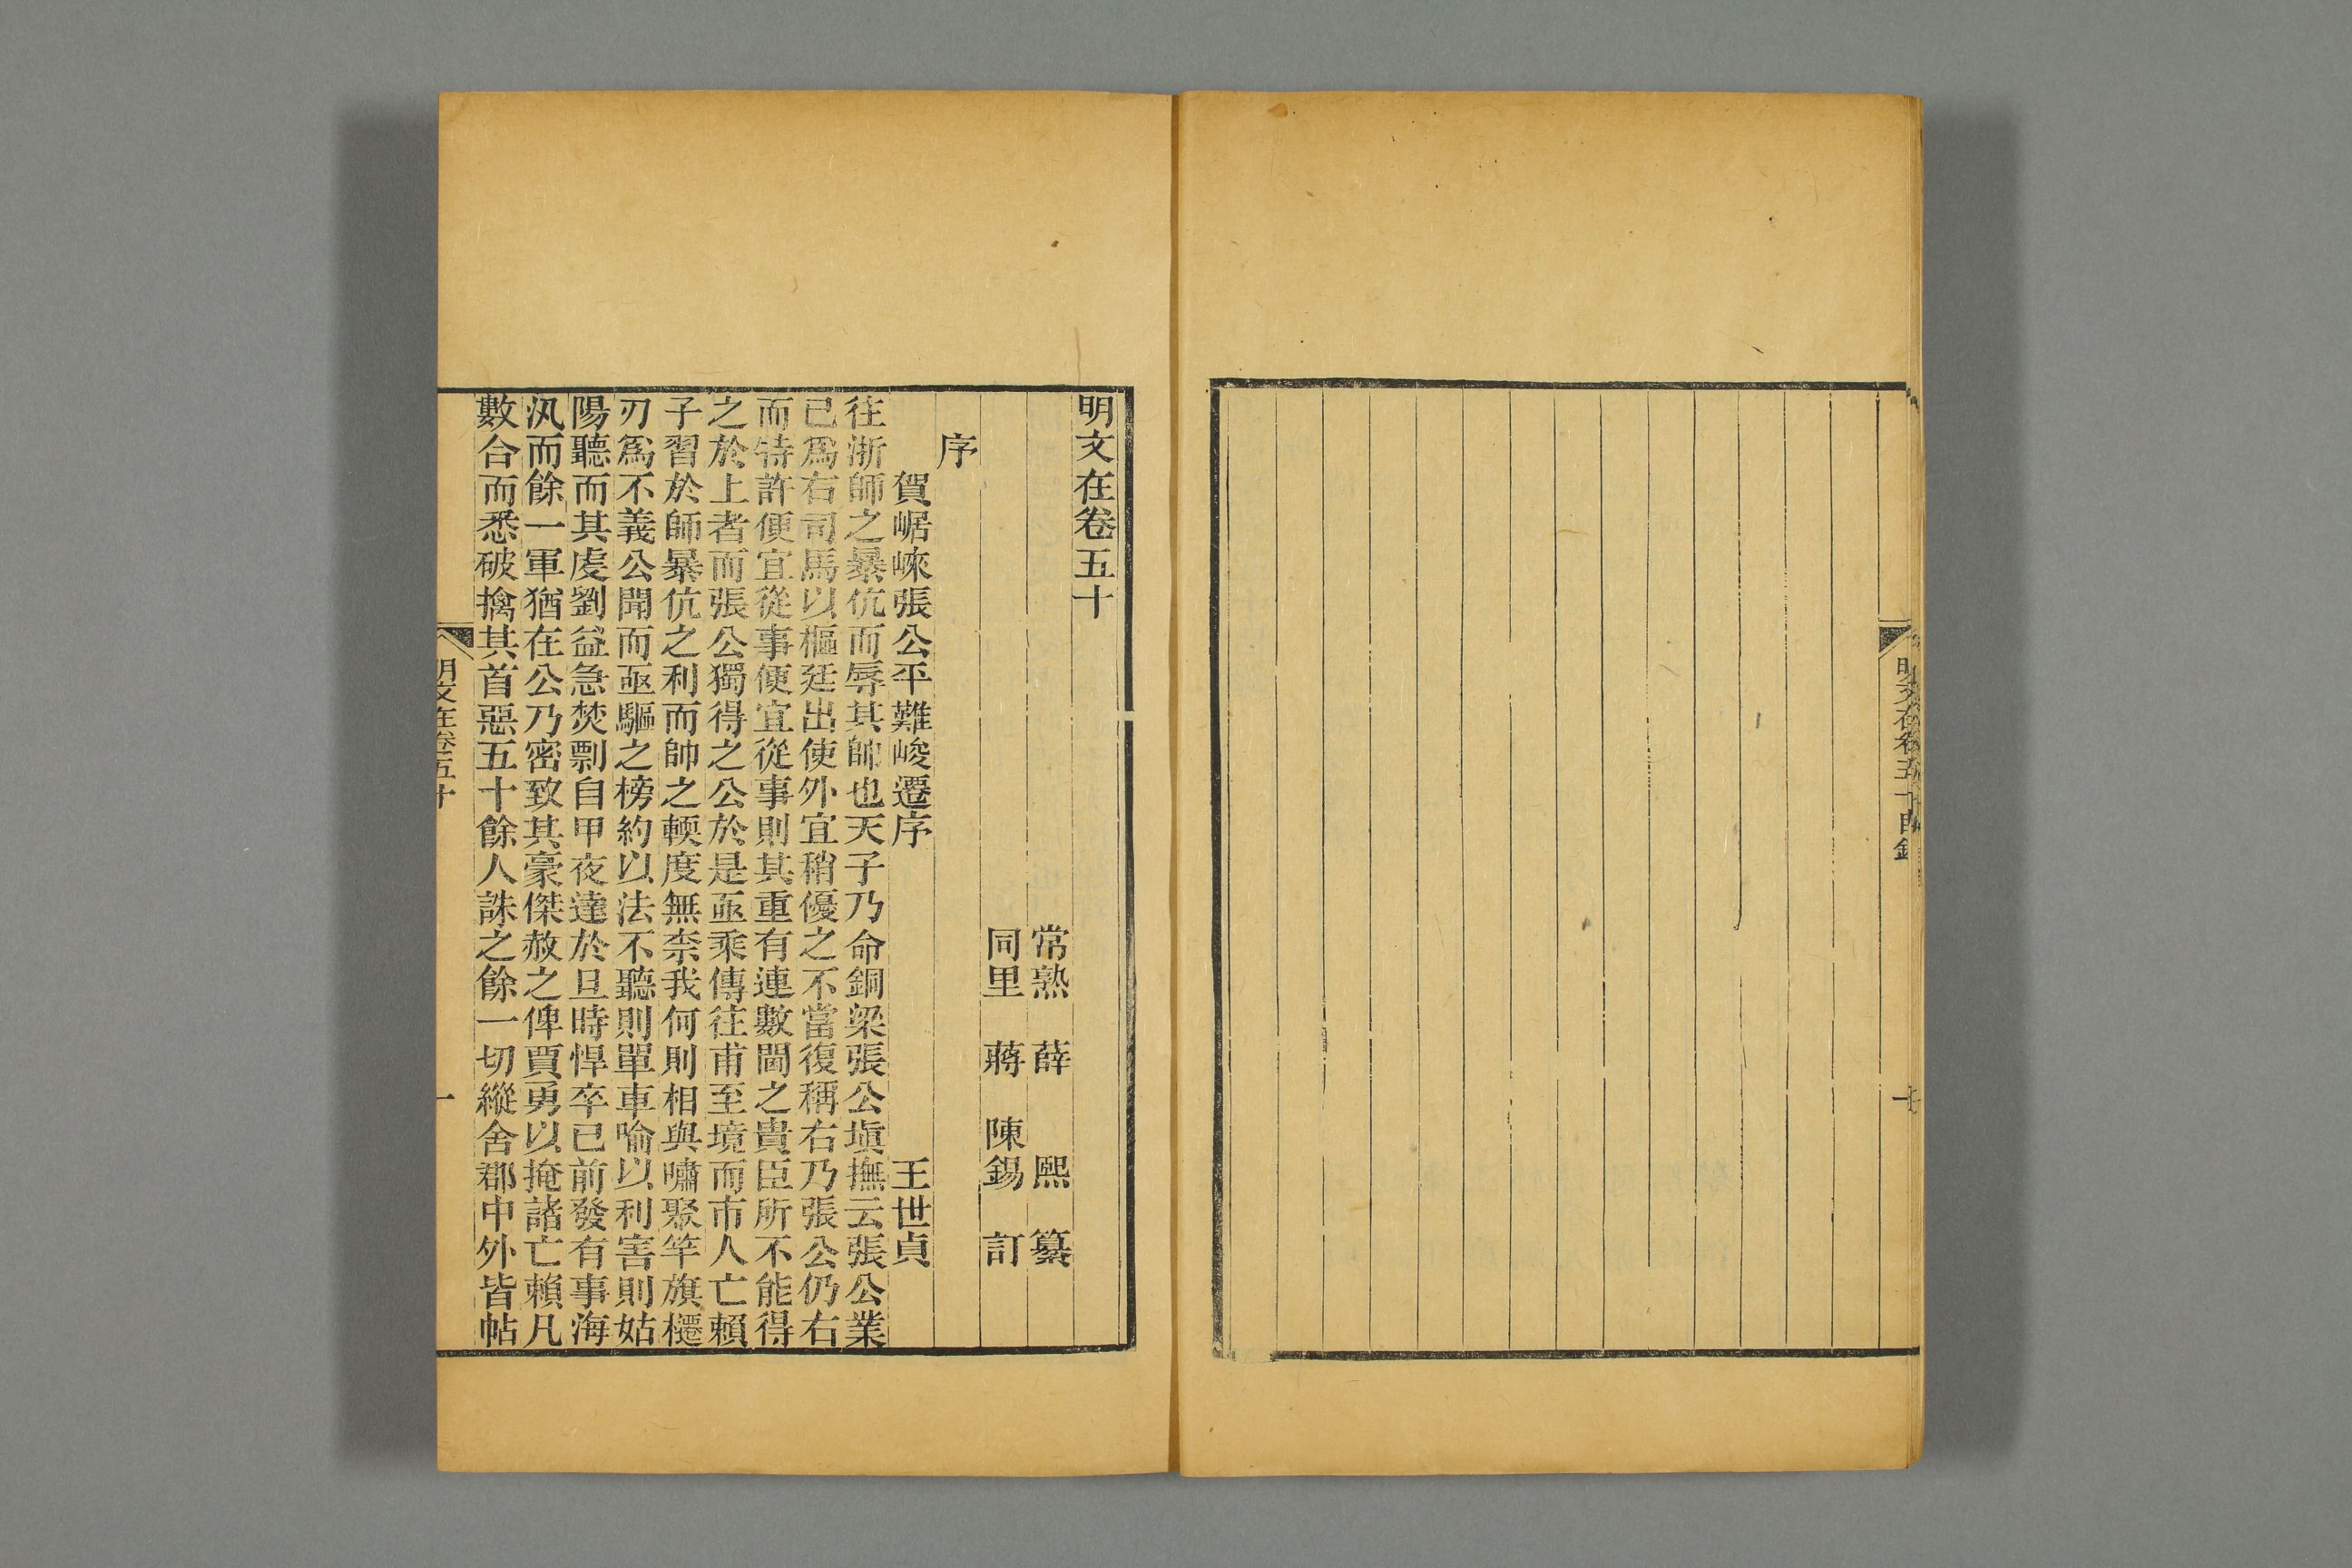 明文在卷五十目錄
明文在卷五十
常熟 薛 熙 纂
同里 蔣 陳錫 訂
序
賀崌崍張公平難峻遷序 王世貞
往浙師之暴伉而辱其帥也天子乃命銅梁張公塡撫云張公業
已爲右司馬以樞廷出使外宜稍優之不當復稱右乃張公仍右
而特許便宜從事便宜從事則其重有連數閫之貴臣所不能得
之於上者而張公獨得之公於是亟乘傳往甫至境而市人亡賴
子習於師暴伉之利而帥之輭度無柰我何則相與嘯聚竿旗櫏
刃爲不義公聞而亟驅之榜約以法不聽則單車喻以利害則姑
陽聽而其虔劉益急焚剽自甲夜達於旦時悍卒已前發有事海
汛而餘一軍猶在公乃密致其豪傑赦之俾賈勇以掩諸亡賴凡
數合而悉破擒其首惡五十餘人誅之餘一切縱舍郡中外皆帖
明文在卷五十
一